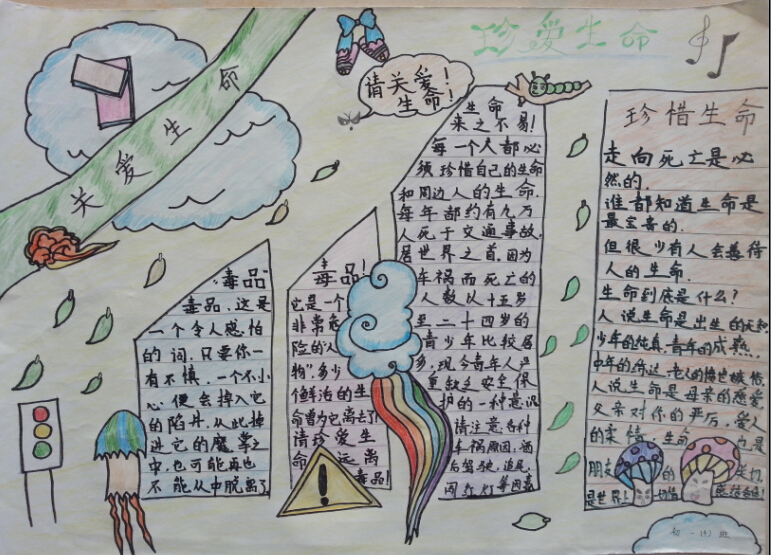 珍爱生命
关爱生命
请关爱
生命!
"毒品"
毒品,这是
一个令人感怕
的词,只要你一
有不慎,一个不小
心便会掉入它
的陷井,从此掉
进它的魔掌之
中,也可能再也
不能从中脱离了
毒品!
它是一个
非常危
险的"人
物",多少
个鲜活的生
命曾为它离去了
请珍爱生
命 远离
毒品!
生命
来之不易!
每一个人都必
须珍惜自己的生命
和周边人的生命.
每年都约有九万
人死于交通事故,
居世界之首,因为
车祸而死亡的
人数从十五岁
至二十四岁的
青少年比较居
多,现今青年人
重缺乏安全保
护的一种意识
请注意:各种
车祸原因:酒
后驾驶,追尾,
闯红灯等因素
珍惜生命
走向死亡是必
然的.
谁都知道生命是
最宝贵的.
但很少有人会善待
人的生命.
生命到底是什么?
人说生命是出生的天真
少年的纯真,青年的成熟,
中年的 老人的
人说生命是母亲的慈爱,
父亲对你的严厉,爱人
的柔情,生命 也是
朋友 的
是世界上
初一 班